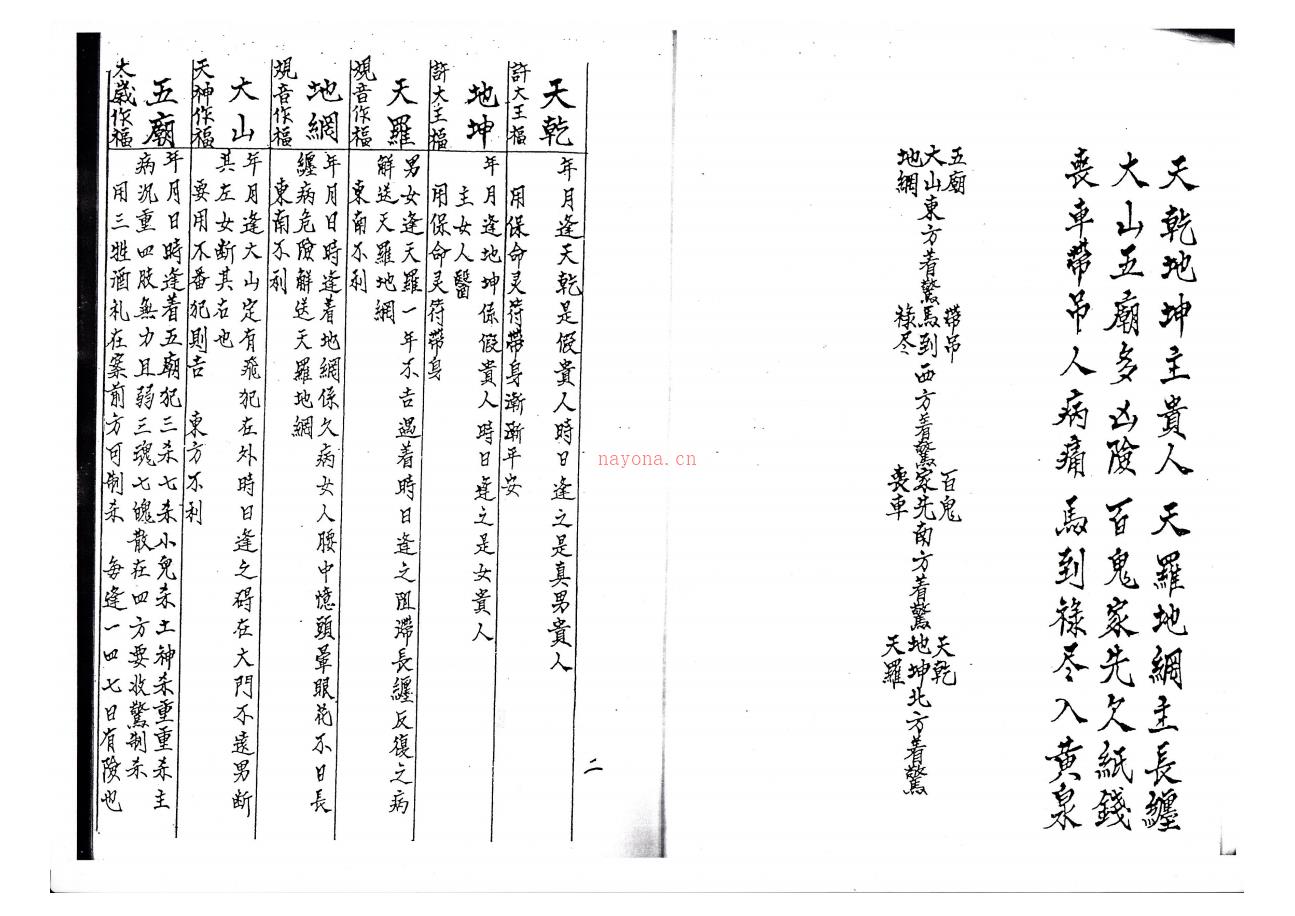 天乾地坤主貴人　天羅地綱主長纏
大山五廟多凶險　百鬼家先欠紙錢
喪車帶吊人病痛　馬到祿尽入黄泉
五廟
大山
地綱
東方着驚
帶吊
馬到
祿尽
西方着驚
百鬼
家先
喪車
南方着驚
天乾
地坤
天羅
北方着驚
二
天乾
許大王福
年月逢天乾是假貴人時日逢之是真男貴人
用保命灵符帶身漸漸平安
地坤
許大主福
年月逢地坤係假貴人時日逢之是女貴人
主女人醫
用保命灵符帶身
天羅
觀音作福
男女逢天羅一年不吉遇着時日逢之阻滯長纏反復之病
解送天羅地綱
東南不利
地綱
觀音作福
年月日時逢着地綱係久病女人腰中憶頭暈眼花不日長
纏病危險解送天羅地綱
東南不利
大山
天神作福
年月逢大山定有飛犯在外時日逢之碍在大門不遠男断
其左女断其右也
要用不番犯則吉　東方不利
五廟
太歲作福
年月日時逢着五廟犯三杀七杀小兒杀土神杀重重杀主
病沉重四肢無力且弱三魂七魄散在四方要收驚制杀
用三牲酒礼在案前方可制杀　每逢一四七日有險也
nayona.cn